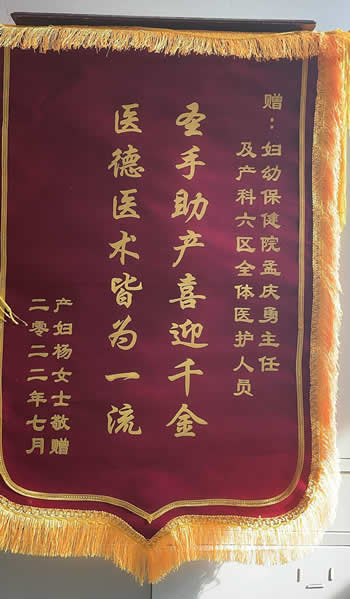 赠：妇幼保健院孟庆勇主任
及产科六区全体医护人员
圣手助产喜迎千金
医德医术皆为一流
产妇杨女士敬赠
二零二二年七月